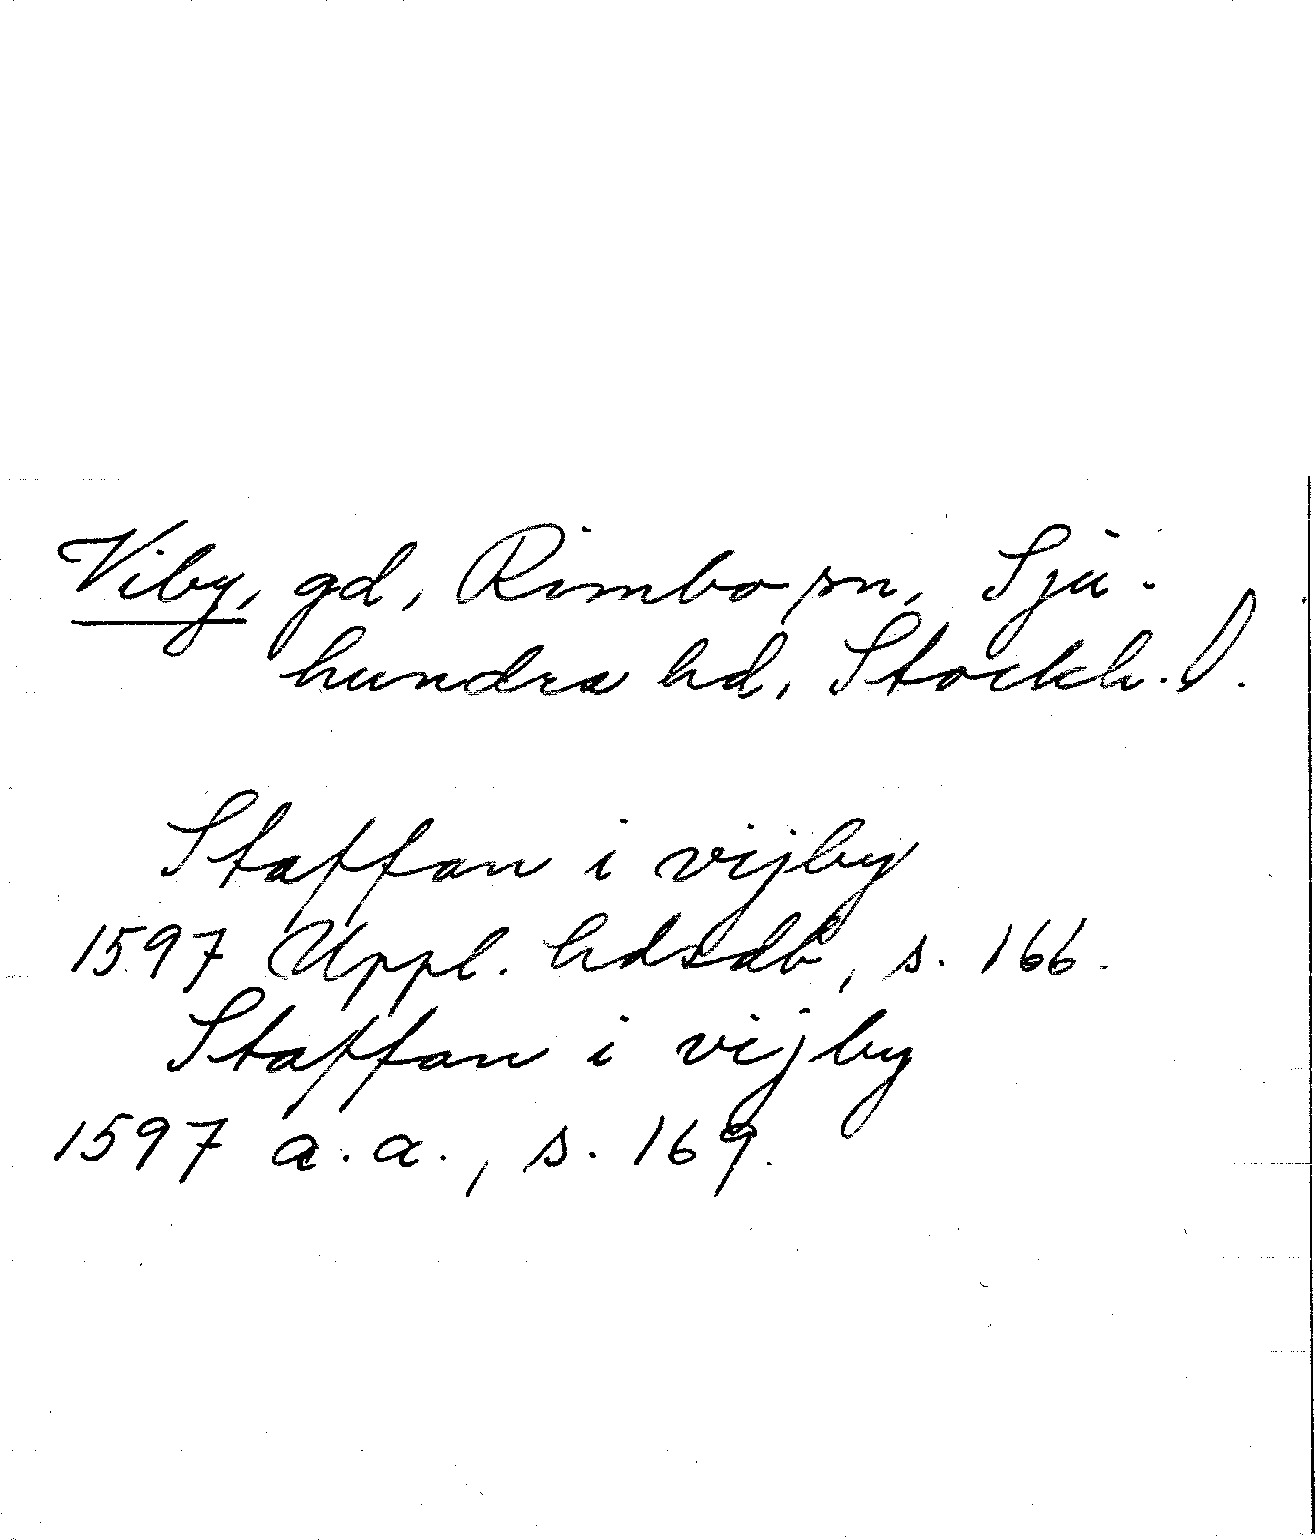 Viby, gd, Rimbo sn, Sju-
hundra hd, Stockh. l.
Staffan i vijby
1597 Uppl. hdsdb, s. 166.
Staffan i vijby
1597 a.a., s. 169.